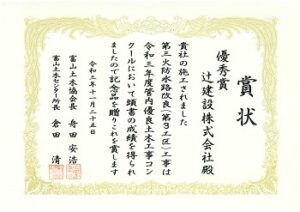 賞状
優秀賞
辻建設株式会社殿
貴社の施工されました
第三火防水路改良(第9工区)工事は
令和三年度管内優良土木工事コン
クールにおいて頭書の成績を得られ
ましたので記念品を贈りこれを賞します
令和三年十一月二十五日
富山土木協会長 舟田安浩
富山土木センター所長 倉田清